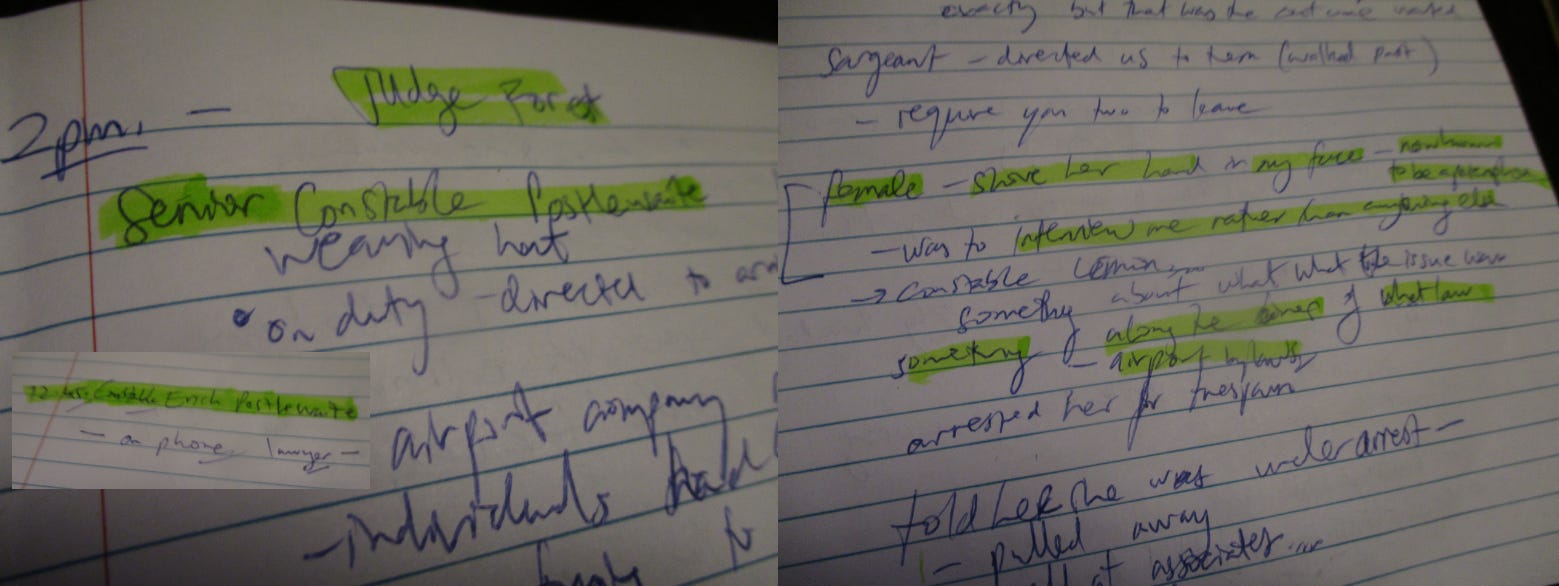 2pm. — Judge
Senior Constable Postlewaite
wearing hat
• on duty – directed to
airport company
– individuals had
Constable Erich Postlewaite
– on phone, lawyer –
exactly but that was the
Sargeant – directed us to them (walked past)
– require you two to leave
female – shove her hand in my face –
to be
– was to interview me rather than anything else
→ Constable
something about what what the issue was
something of along the lines of what law
– airport bylaws
arrested her for trespass
told her she was under arrest –
– pulled away
associates